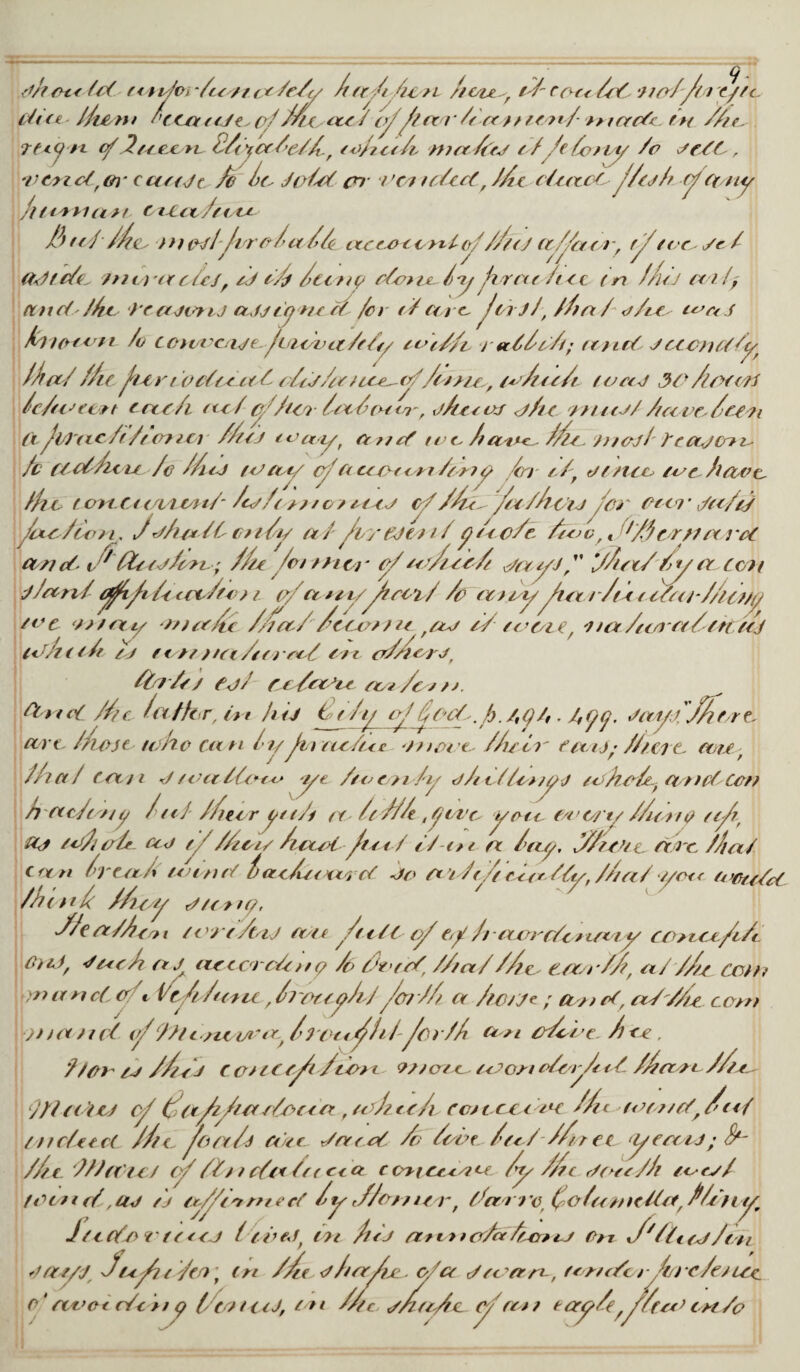 9.
should unfortunately happen here, it could not preju
dice them because of the act of parliament made in the
reign of Queen Elizabeth, which makes it felony to sell,
vend, or cause to be sold or vended, the dead flesh of any
human creature
But the most probable account of this affair, if we set
aside miracles, is its being done by practice in this art,
and the reasons assigned for it are first, that she was
known to converse privately with rabbits; and secondly,
that the periodical distance of time, which was 30 hours
between each act of her labour, shews she must have been
a practitioner this way, and we have the most reason
to adhere to this way of accounting for it, since we have
the concurrent testimonies of the fathers for our satis
faction. I shall only at present quote two, St Bernard
and St Austin; the former of which says, "That by a con
stant application of any part to any particular thing
we may make that become, as it were, natural in us
which is unnatural in others,
Artes est celare artem.
And the latter, in his City of God. p. 494. 499. says "There
are those who can by practice move their ears; there are,
that can swallow ye twenty shillings whole, and con
tracting but their guts a little, give you every thing up,
as whole as if they had put it in a bag. There are that
can break wind backward so artificially, that you would
think they sung.
Heathen writers are full of extraordinary concepti
ons, such as, according to Ovid, that the earth, at the com
mand of Neptune, brought forth a horse; and, at the com
mand of Minerva, brought forth an olive tree.
Nor is this conception more wonderful than the
Mares of Cappadocia, which conceive the wind, but
indeed the foals are said to live but three years; &
the Mares of Andalucca conceive by the South west
wind, as is affirmed by Homer, Varro, Columella, Pliny.
Ludovicus Vives, in his annotations on St Austin
says, Jupiter, in the shape of a swan, under pretence
of avoiding Venus, in the shape of an eagle, flew into